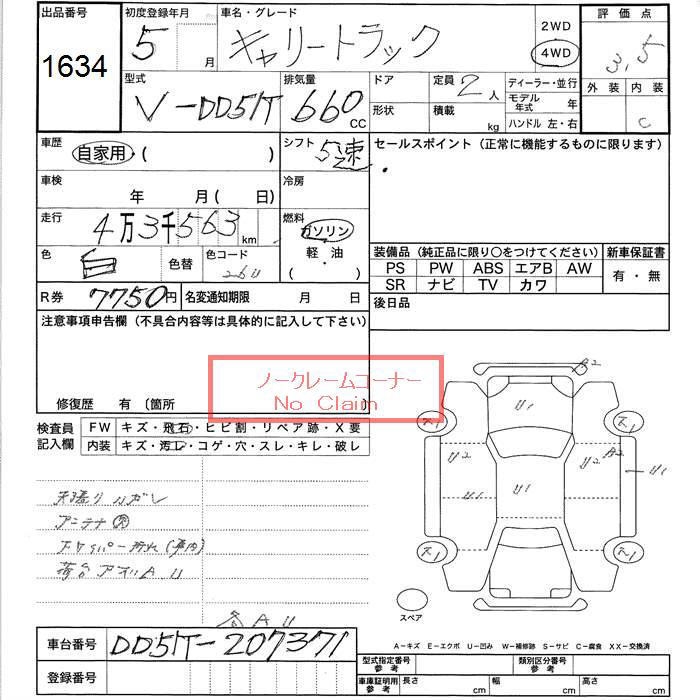 出品番号
1634
初度登録年月
5 月
車名・グレード
キャリートラック
2WD
4WD
評価点
3.5
外装 内装
C
型式
V-DD51T
排気量
660 CC
ドア
形状
定員 2 人
積載 kg
ディーラー・並行
モデル年式 年
ハンドル 左・右
車歴
自家用・( )
シフト
5速
セールスポイント (正常に機能するものに限ります)
車検
年 月( 日)
冷房
走行
4万3千563 km
燃料
ガソリン
軽・油
( )
色
白
色替
色コード
26U
装備品 (純正品に限り○をつけてください)
新車保証書
PS PW ABS エアB AW
SR ナビ TV カワ
有・無
R券 7750円
名変通知期限 月 日
後日品
注意事項申告欄 (不具合内容等は具体的に記入して下さい)
ノークレームコーナー
No Claim
修復歴 有 〔箇所
検査員記入欄
FW キズ・飛石・ヒビ割・リペア跡・X要
内装 キズ・汚レ・コゲ・穴・スレ・キレ・破レ
天張りハガレ
アンテナ
A U
B2
U1
U2
U2 B2
U1
U1
U1
スペア
A-キズ E-エクボ U-凹み W-補修跡 S-サビ C-腐食 XX-交換済
車台番号 DD51T-207371
登録番号
型式指定番号 参考
類別区分番号 参考
車庫証明用 参考
長さ cm 幅 cm 高さ cm